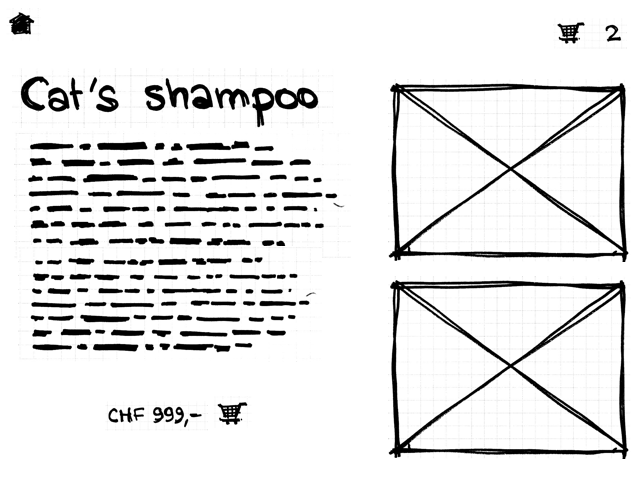 2
Cat's shampoo
CHF 999,-